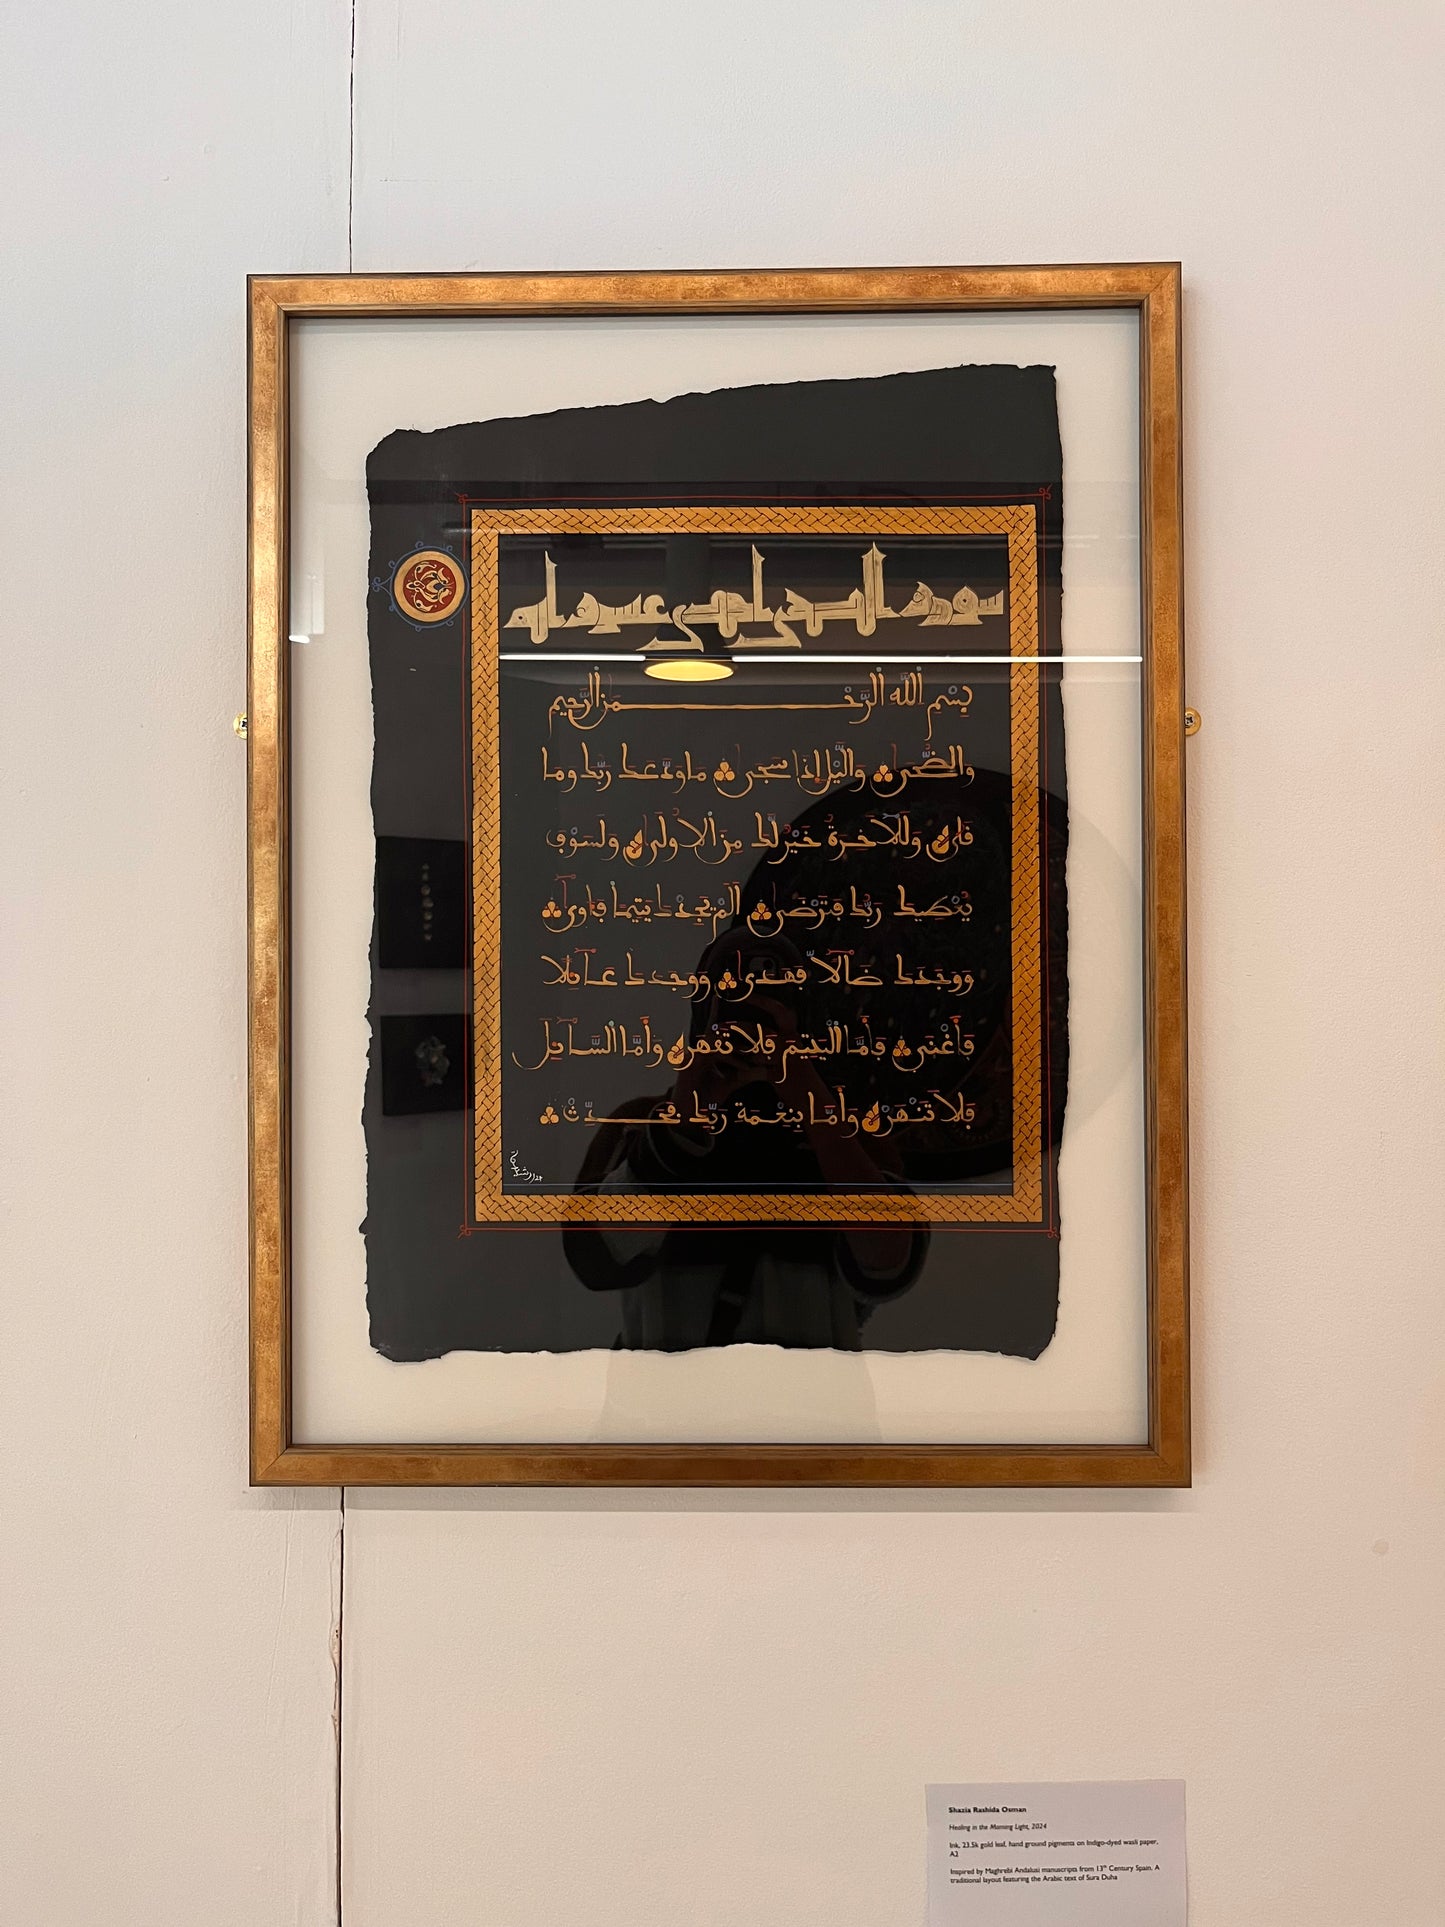 سورة الضحى احدى عشرة اية
بِسْمِ اللَّهِ الرَّحْمَنِ الرَّحِيمِ
وَالضُّحَى وَالَّيْلِ إِذَا سَجَى مَا وَدَّعَكَ رَبُّكَ وَمَا
قَلَى وَلَلْآخِرَةُ خَيْرٌ لَّكَ مِنَ الْأُولَى وَلَسَوْفَ
يُعْطِيكَ رَبُّكَ فَتَرْضَى أَلَمْ يَجِدْكَ يَتِيمًا فَآوَى
وَوَجَدَكَ ضَآلًّا فَهَدَى وَوَجَدَكَ عَآئِلًا
فَأَغْنَى فَأَمَّا الْيَتِيمَ فَلَا تَقْهَرْ وَأَمَّا السَّآئِلَ
فَلَا تَنْهَرْ وَأَمَّا بِنِعْمَةِ رَبِّكَ فَحَدِّثْ
Shazia Rashida Osman
Healing in the Morning Light, 2024
Ink, 23.5k gold leaf, hand ground pigments on Indigo-dyed wasli paper,
A2
Inspired by Maghrebi Andalusi manuscripts from 13th Century Spain. A
traditional layout featuring the Arabic text of Sura Duha